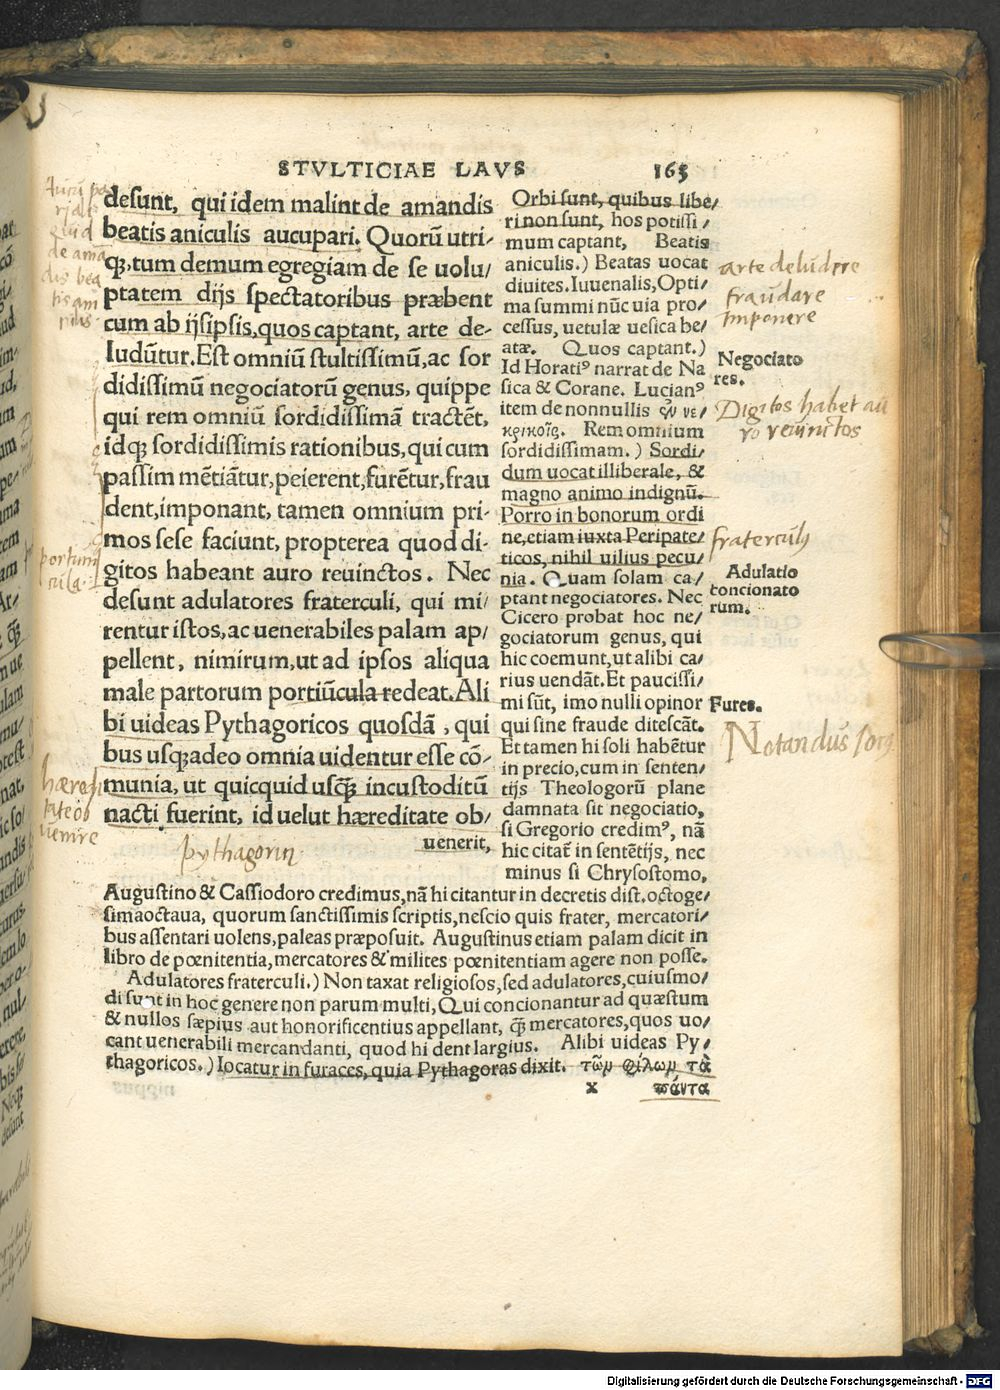 STVLTICIAE LAVS 163
desunt, qui idem malint de amandis
beatis aniculis aucupari. Quorũ utri/
ꝙ,tum demum egregiam de se uolu/
ptatem dijs spectatoribus præbent
cum ab ijsipsis,quos captant, arte de-
ludũtur.Est omniũ stultissimũ,ac sor
didissimũ negociatorũ genus, quippe
qui rem omniũ sordidissimã tractẽt,
idq́ꝫ sordidissimis rationibus,qui cum
passim mẽtiãtur,peierent,furẽtur,frau
dent,imponant, tamen omnium pri-
mos sese faciunt, propterea quod di-
gitos habeant auro reuinctos. Nec
desunt adulatores fraterculi, qui mi/
rentur istos,ac uenerabiles palam ap/
pellent, nimirum,ut ad ipsos aliqua
male partorum portiũcula redeat.Ali
bi uideas Pythagoricos quosdã, qui
bus usq́ꝫadeo omnia uidentur esse cõ-
munia, ut quicquid usꝙ̃ incustoditũ
nacti fuerint, id uelut hæreditate ob/
uenerit,
Orbi sunt, quibus libe/
ri non sunt, hos potissi/
mum captant, Beatis
aniculis.) Beatas uocat
diuites. Iuuenalis, Opti/
ma summi nũc uia pro/
cessus, uetulæ uesica be/
atæ. Quos captant.)
Id Horatiꝰ narrat de Na
sica & Corano. Lucianꝰ
item de nonnullis ἐν νε/
κρικοῖς. Rem omnium
sordidissimam.) Sordi/
dum uocat illiberale, &
magno animo indignũ.
Porro in bonorum ordi
ne,etiam iuxta Peripate/
ticos, nihil uilius pecu/
nia. Quam solam ca/
ptant negociatores. Nec
Cicero probat hoc ne/
gociatorum genus, qui
hic coemunt,ut alibi ca/
rius uendãt.Et paucissi/
mi sũt, imo nulli opinor
qui sine fraude ditescãt.
Et tamen hi soli habẽtur
in precio,cum in senten/
tijs Theologorũ plane
damnata sit negociatio,
si Gregorio credimꝰ, nã
hic citat̃ in sentẽtijs, nec
minus si Chrysostomo,
Augustino & Cassiodoro credimus,nã hi citantur in decretis dist,octoge/
simaoctaua, quorum sanctissimis scriptis,nescio quis frater, mercatori/
bus assentari uolens,paleas præposuit. Augustinus etiam palam dicit in
libro de pœnitentia,mercatores & milites pœnitentiam agere non posse.
Adulatores fraterculi.) Non taxat religiosos,sed adulatores,cuiusmo/
di sunt in hoc genere non parum multi,Qui concionantur ad quæstum
& nullos sæpius aut honorificentius appellant, ꝙ̃ mercatores,quos uo/
cant uenerabili mercandanti, quod hi dent largius. Alibi uideas Py/
thagoricos.) Iocatur in furaces, quia Pythagoras dixit. τῶν φίλων τὰ
x πάντα
Negociato
res.
Adulatio
concionato
rum.
Fures.
arte deludere
fraudare
Imponere
Digitos habet au
ro reuinctos
fraterculus
portiun
cula
hæredi
tate ob
uenire
pythagorici